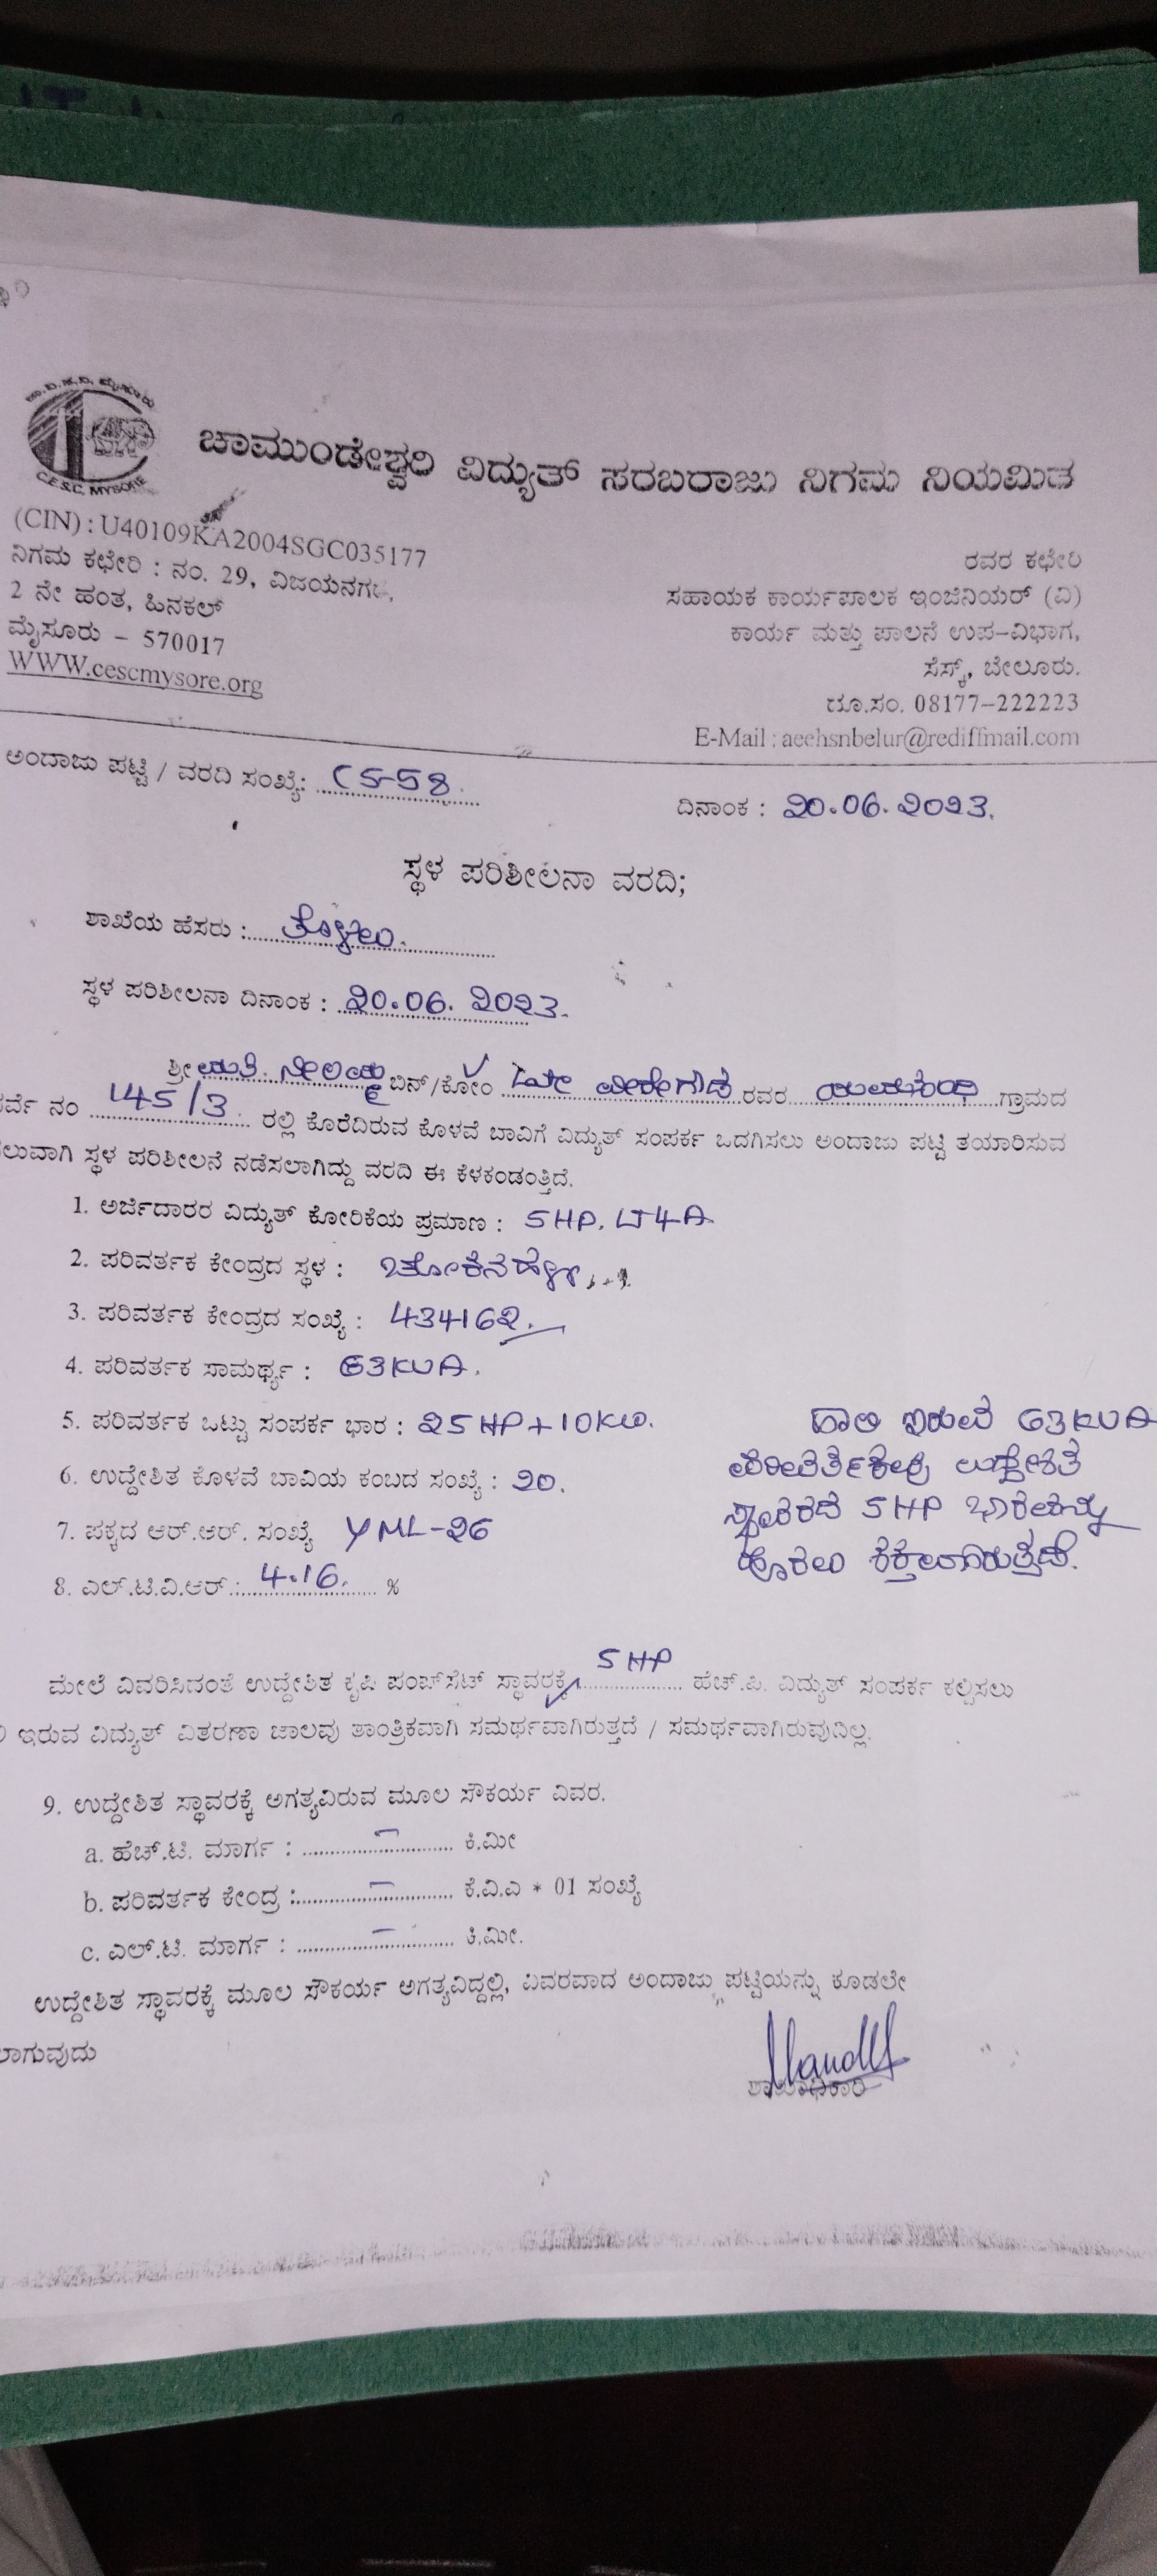 C.E.S.C. MYSORE
ಚಾಮುಂಡೇಶ್ವರಿ ವಿದ್ಯುತ್ ಸರಬರಾಜು ನಿಗಮ ನಿಯಮಿತ
(CIN) : U40109KA2004SGC035177
ನಿಗಮ ಕಛೇರಿ : ನಂ. 29, ವಿಜಯನಗರ,
2 ನೇ ಹಂತ, ಹಿನಕಲ್
ಮೈಸೂರು – 570017
WWW.cescmysore.org
ರವರ ಕಛೇರಿ
ಸಹಾಯಕ ಕಾರ್ಯಪಾಲಕ ಇಂಜಿನಿಯರ್ (ವಿ)
ಕಾರ್ಯ ಮತ್ತು ಪಾಲನೆ ಉಪ-ವಿಭಾಗ,
ಸೆಸ್ಕ್, ಬೇಲೂರು.
ದೂ.ಸಂ. 08177-222223
E-Mail : aeehsnbelur@rediffmail.com
ಅಂದಾಜು ಪಟ್ಟಿ / ವರದಿ ಸಂಖ್ಯೆ: CS-58
ದಿನಾಂಕ : 20.06.2023.
ಸ್ಥಳ ಪರಿಶೀಲನಾ ವರದಿ;
ಶಾಖೆಯ ಹೆಸರು : ತೊಳಲು.
ಸ್ಥಳ ಪರಿಶೀಲನಾ ದಿನಾಂಕ : 20.06.2023.
ಶ್ರೀಮತಿ. ನೀಲಮ್ಮ ಬಿನ್/ಕೋಂ ವೀರೇಗೌಡ ರವರ ಗ್ರಾಮದ
ರ್ವೆ ನಂ 145/3. ರಲ್ಲಿ ಕೊರೆದಿರುವ ಕೊಳವೆ ಬಾವಿಗೆ ವಿದ್ಯುತ್ ಸಂಪರ್ಕ ಒದಗಿಸಲು ಅಂದಾಜು ಪಟ್ಟಿ ತಯಾರಿಸುವ
ಲುವಾಗಿ ಸ್ಥಳ ಪರಿಶೀಲನೆ ನಡೆಸಲಾಗಿದ್ದು ವರದಿ ಈ ಕೆಳಕಂಡಂತ್ತಿದೆ.
1. ಅರ್ಜಿದಾರರ ವಿದ್ಯುತ್ ಕೋರಿಕೆಯ ಪ್ರಮಾಣ : 5HP. LT4A
2. ಪರಿವರ್ತಕ ಕೇಂದ್ರದ ಸ್ಥಳ :
3. ಪರಿವರ್ತಕ ಕೇಂದ್ರದ ಸಂಖ್ಯೆ : 434162.
4. ಪರಿವರ್ತಕ ಸಾಮರ್ಥ್ಯ : 63KVA.
5. ಪರಿವರ್ತಕ ಒಟ್ಟು ಸಂಪರ್ಕ ಭಾರ : 25HP+10KW.
6. ಉದ್ದೇಶಿತ ಕೊಳವೆ ಬಾವಿಯ ಕಂಬದ ಸಂಖ್ಯೆ : 20.
7. ಪಕ್ಕದ ಆರ್.ಆರ್. ಸಂಖ್ಯೆ YML-26
8. ಎಲ್.ಟಿ.ವಿ.ಆರ್.: 4.16. %
ಹಾಲಿ ಇರುವ 63KVA
ಪರಿವರ್ತಕವು ಉದ್ದೇಶಿತ
ಸ್ಥಾವರದ 5HP ಭಾರವನ್ನು
ಹೊರಲು ಶಕ್ತವಾಗಿರುತ್ತದೆ.
ಮೇಲೆ ವಿವರಿಸಿದಂತೆ ಉದ್ದೇಶಿತ ಕೃಷಿ ಪಂಪ್‌ಸೆಟ್ ಸ್ಥಾವರಕ್ಕೆ 5HP ಹೆಚ್.ಪಿ. ವಿದ್ಯುತ್ ಸಂಪರ್ಕ ಕಲ್ಪಿಸಲು
ಇರುವ ವಿದ್ಯುತ್ ವಿತರಣಾ ಜಾಲವು ತಾಂತ್ರಿಕವಾಗಿ ಸಮರ್ಥವಾಗಿರುತ್ತದೆ / ಸಮರ್ಥವಾಗಿರುವುದಿಲ್ಲ.
9. ಉದ್ದೇಶಿತ ಸ್ಥಾವರಕ್ಕೆ ಅಗತ್ಯವಿರುವ ಮೂಲ ಸೌಕರ್ಯ ವಿವರ.
a. ಹೆಚ್.ಟಿ. ಮಾರ್ಗ : – ಕಿ.ಮೀ
b. ಪರಿವರ್ತಕ ಕೇಂದ್ರ : – ಕೆ.ವಿ.ಎ * 01 ಸಂಖ್ಯೆ
c. ಎಲ್.ಟಿ. ಮಾರ್ಗ : – ಕಿ.ಮೀ.
ಉದ್ದೇಶಿತ ಸ್ಥಾವರಕ್ಕೆ ಮೂಲ ಸೌಕರ್ಯ ಅಗತ್ಯವಿದ್ದಲ್ಲಿ, ವಿವರವಾದ ಅಂದಾಜು ಪಟ್ಟಿಯನ್ನು ಕೂಡಲೇ
ಲಾಗುವುದು
ಶಾಖಾಧಿಕಾರಿ